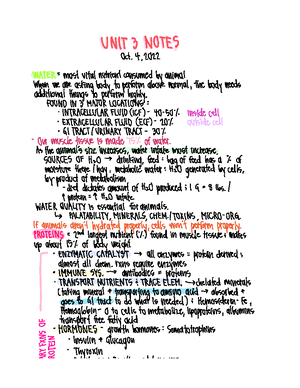 UNIT 3 NOTES
Oct. 4, 2022
WATER = most vital nutrient consumed by animal
When we are asking body to perform above normal, the body needs
additional things to perform highly.
FOUND IN 3 MAJOR LOCATIONS:
- INTRACELLULAR FLUID (ICF) - 40-50% inside cell
- EXTRACELLULAR FLUID (ECF) - 20% outside cell
- GI TRACT / URINARY TRACT - 30%
- Our muscle tissue is made 75% of water.
As the animal's size increases, water intake must increase.
SOURCES OF H₂O → drinking, feed: bag of feed has a % of
moisture there / hay, metabolic water: H₂O generated by cells,
by product of metabolism
- diet dictates amount of H₂O produced: 1 g = 8 lbs /
↑ protein = ↑ H₂O intake
WATER QUALITY is essential for animals.
↳ PALATABILITY, MINERALS, CHEM./TOXINS, MICRO-ORG.
If animals aren't hydrated properly, cells won't perform properly.
PROTEINS = 2nd largest nutrient (%) found in muscle tissue: makes
up about 15% of body weight
- ENZYMATIC CATALYST → all enzymes = protein derived:
almost all chem. rxns require enzymes
- IMMUNE SYS. → antibodies = proteins
- TRANSPORT NUTRIENTS & TRACE ELEM. → chelated minerals
(taking mineral + transporting to amino acid → absorbed +
goes to GI tract to do what is needed): Hemosiderin - Fe,
Hemoglobin - O to cells to metabolize, lipoproteins, albumins
transport free fatty acid
- HORMONES - growth hormones: Somatotrophins
- Insulin + Glucagon
- Thyroxin
VARIATIONS OF
PROTEIN